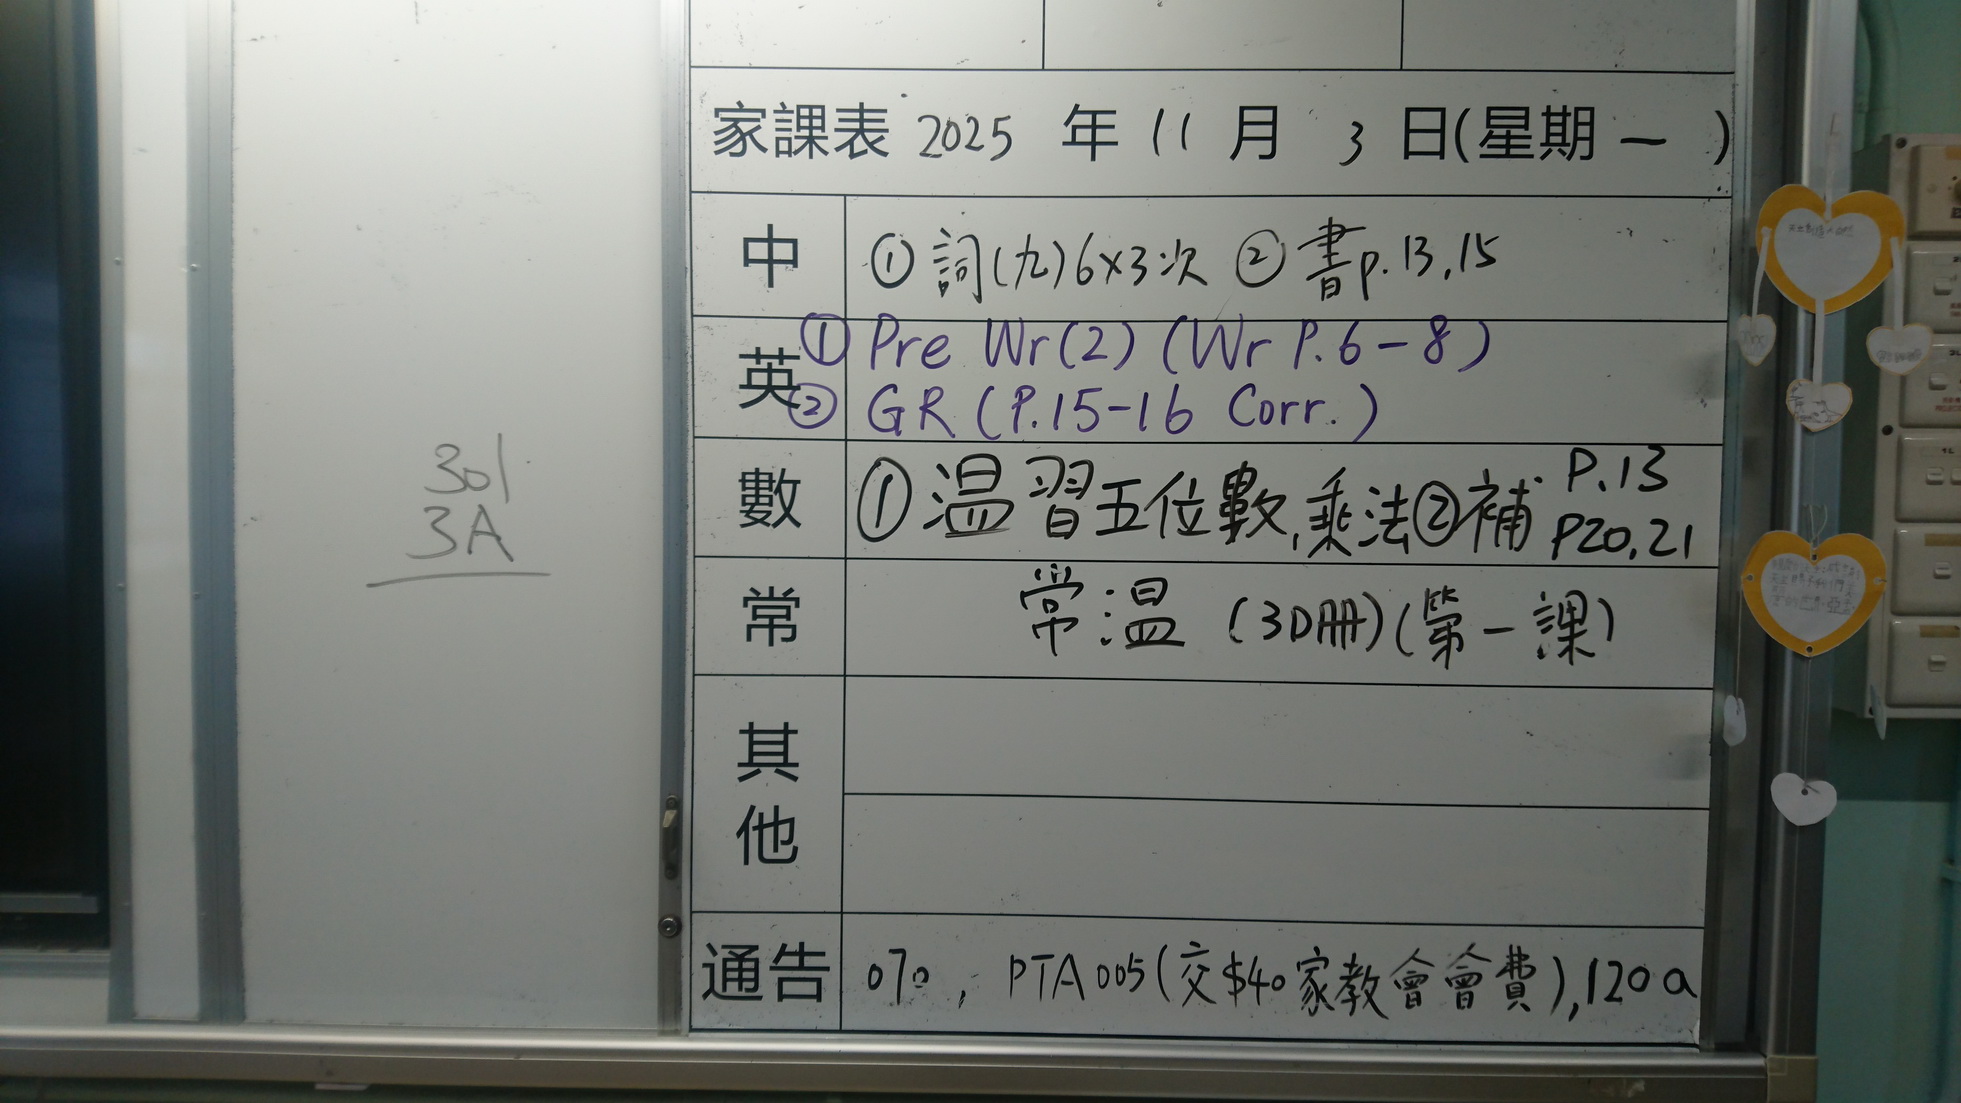 家課表 2025 年 11 月 3 日(星期一)
中 ① 詞(九)6×3次 ② 書p.13,15
英 ① Pre Wr(2) (Wr P.6-8)
② GR (P.15-16 Corr.)
數 ①温習五位數,乘法②補 P.13
P20,21
常 常温 (3D冊)(第一課)
其他
通告 070, PTA005(交$40家教會會費),120a
301
3A